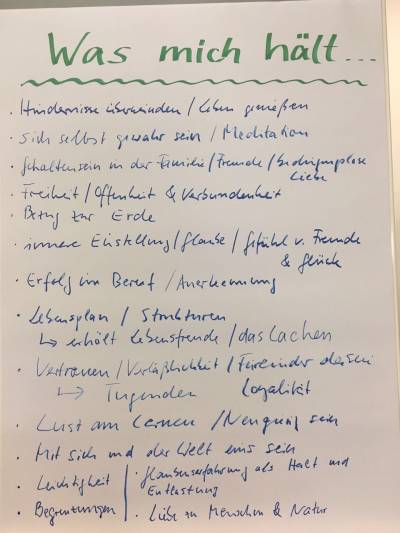 Was mich hält...
· Hindernisse überwinden / Leben genießen
· Sich selbst gewahr sein / Meditation
· Gehaltensein in der Familie / Freunde / bedingungslose
Liebe
· Freiheit / Offenheit & Verbundenheit
· Bezug zur Erde
· innere Einstellung / Glaube / Gefühl v. Freude
& Glück
· Erfolg im Beruf / Anerkennung
· Lebensplan / Strukturen
↳ erhält Lebensfreude / das Lachen
· Vertrauen / Verläßlichkeit / Füreinander dasein
↳ Tugenden Loyalität
· Lust am Lernen / Neugierig sein
· Mit sich und der Welt eins sein
· Leichtigkeit
· Begrenzungen
· Glaubenserfahrung als Halt und
Entlastung
· Liebe zu Menschen & Natur